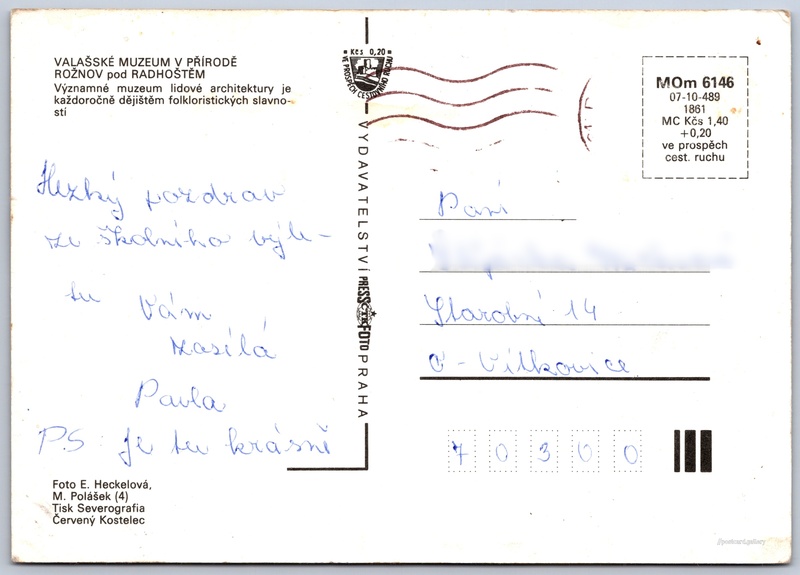 VALAŠSKÉ MUZEUM V PŘÍRODĚ
ROŽNOV pod RADHOŠTĚM
Významné muzeum lidové architektury je
každoročně dějištěm folkloristických slavno-
stí
Hezký pozdrav
ze školního výle-
tu Vám
zasílá
Pavla
PS je tu krásně
Foto E. Heckelová,
M. Polášek (4)
Tisk Severografia
Červený Kostelec
Kčs 0,20
VE PROSPĚCH CESTOVNÍHO RUCHU
VYDAVATELSTVÍ PRESSFOTO PRAHA
ČTK
MOm 6146
07-10-489
1861
MC Kčs 1,40
+0,20
ve prospěch
cest. ruchu
Paní
Starobní 14
O - Vítkovice
70300
@postcard.gallery